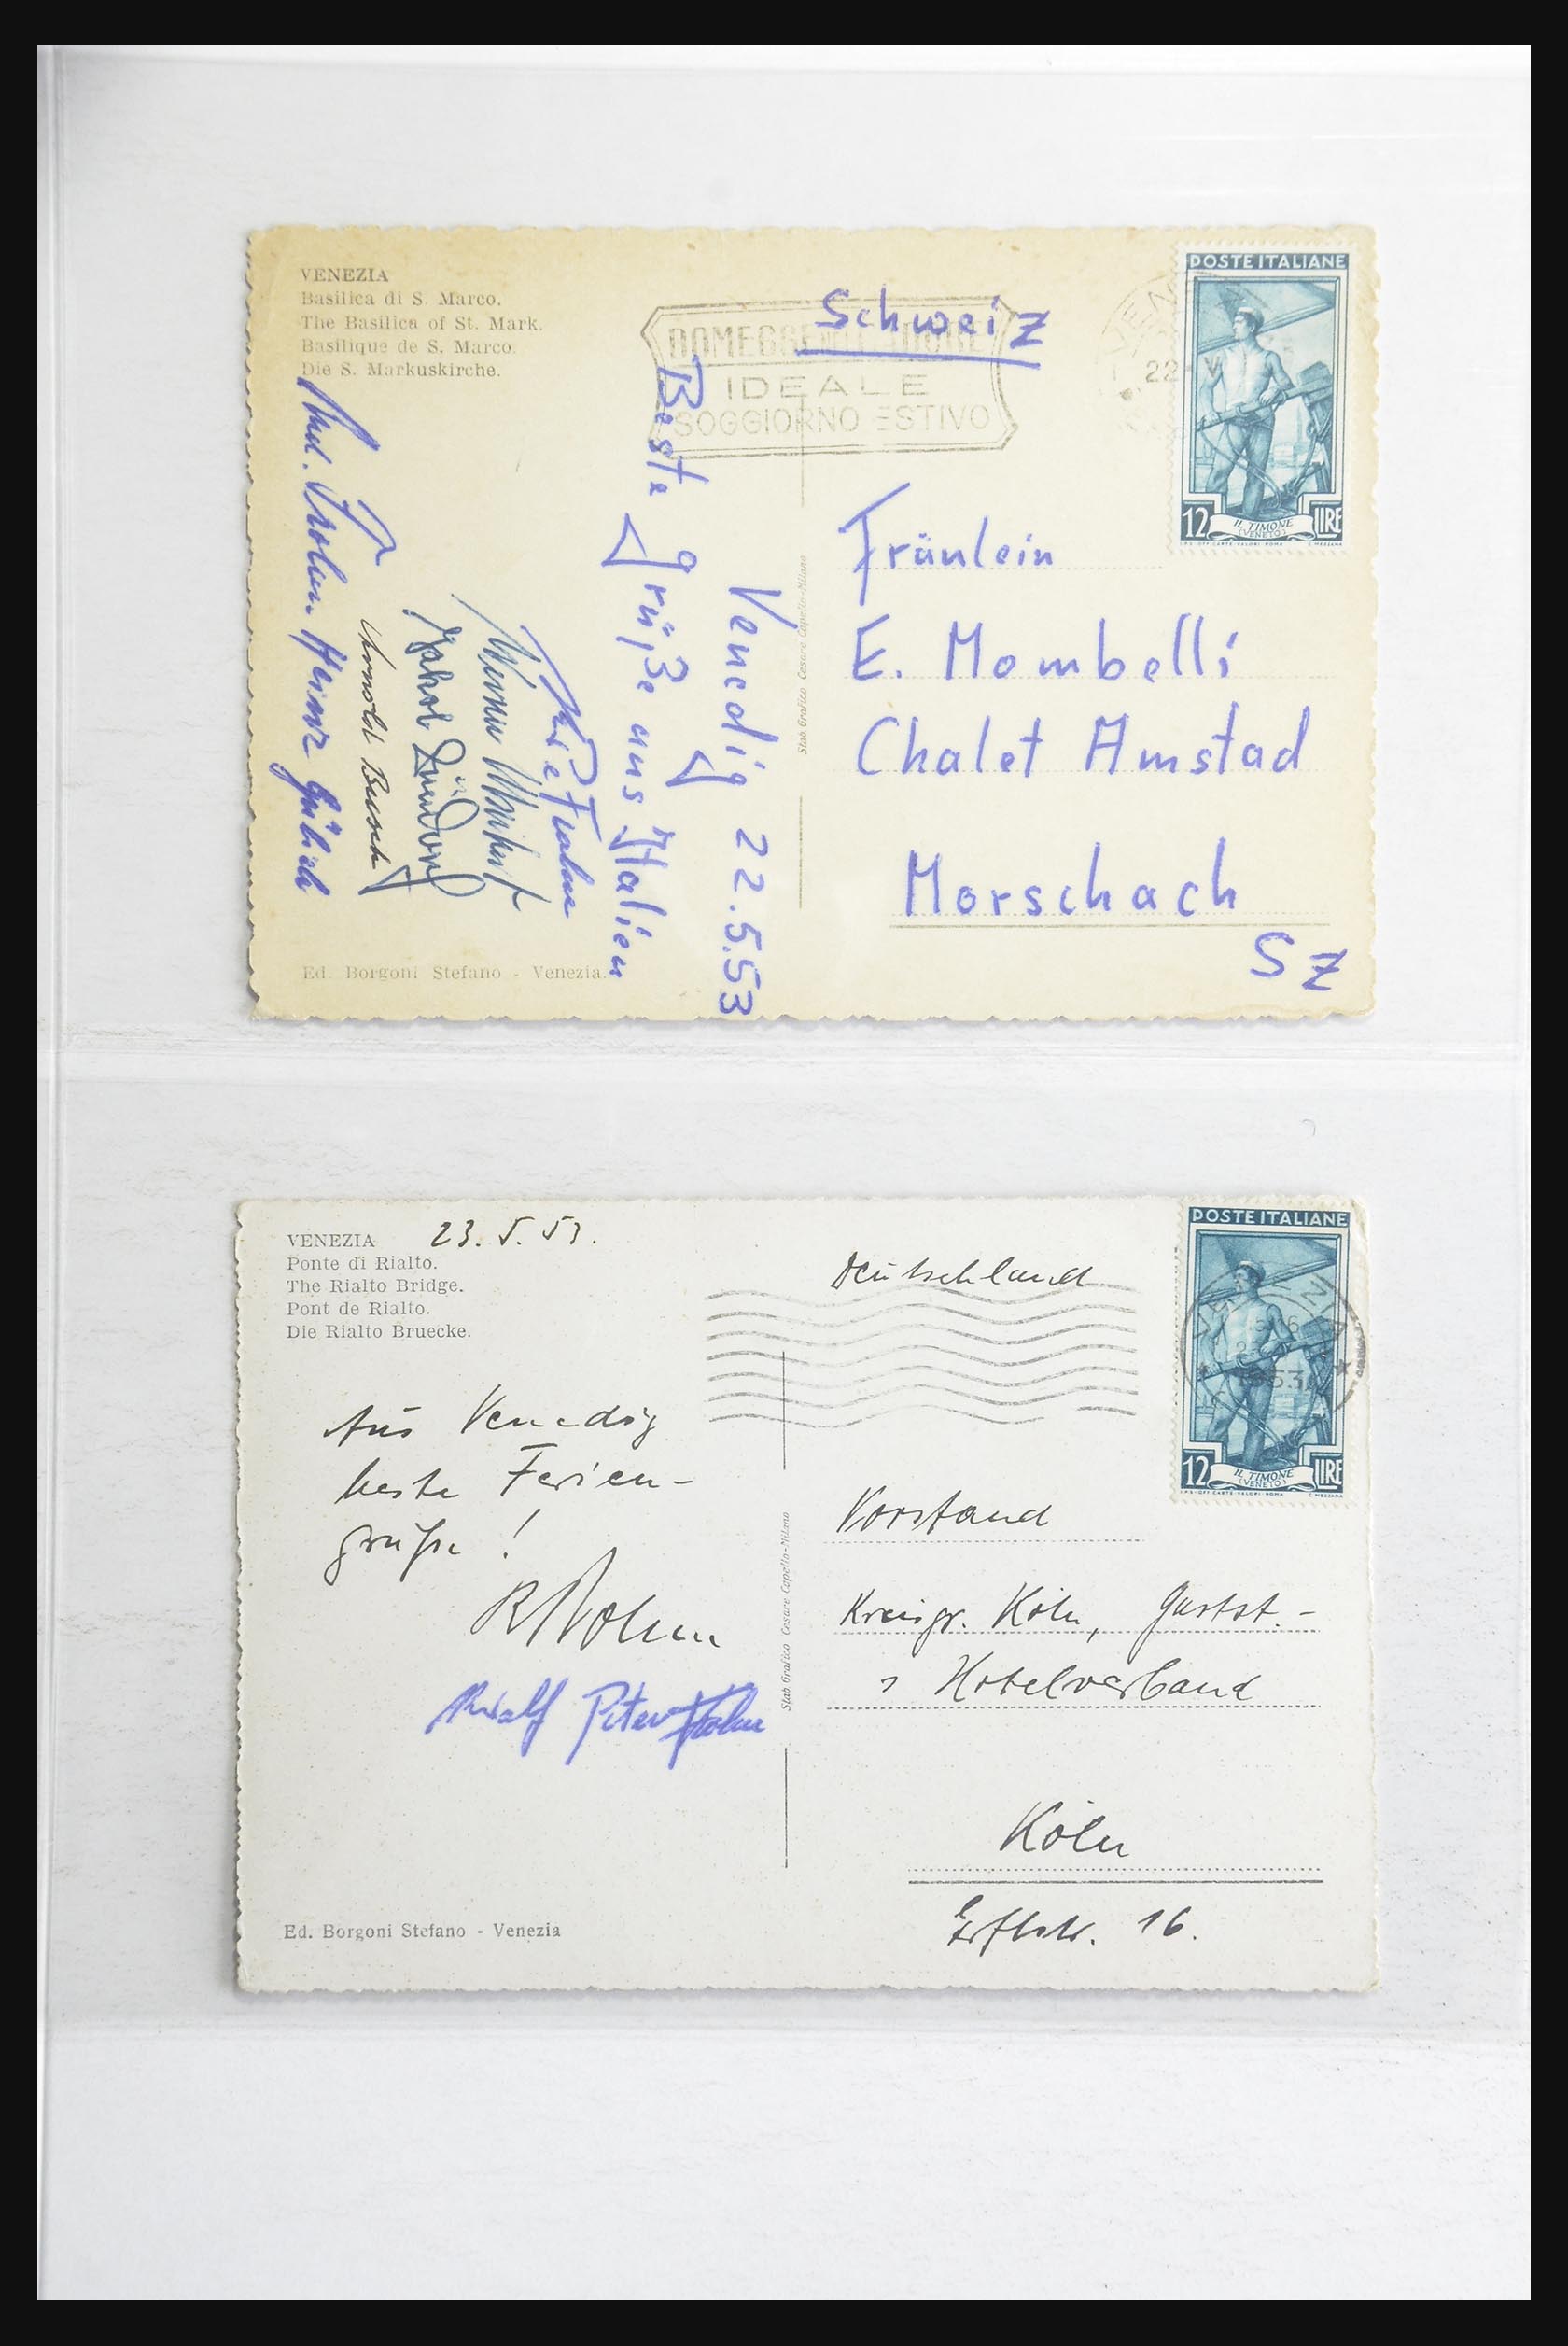 VENEZIA
Basilica di S. Marco.
The Basilica of St. Mark.
Basilique de S. Marco.
Die S. Markuskirche.
IDEALE
SOGGIORNO ESTIVO
Schweiz
22 V
POSTE ITALIANE
12 LIRE
IL TIMONE
(VENETO)
Venedig 22.5.53
Beste Grüße aus Italien
Arnold Busch
Heinz
Stab Grafico Cesare Capello-Milano
Fräulein
E. Mombelli
Chalet Amstad
Morschach
SZ
Ed. Borgoni Stefano - Venezia.
VENEZIA 23.5.53.
Ponte di Rialto.
The Rialto Bridge.
Pont de Rialto.
Die Rialto Bruecke.
Deutschland
POSTE ITALIANE
1953
12 LIRE
IL TIMONE
(VENETO)
Aus Venedig
beste Ferien-
grüße!
Rudolf Peter
Stab Grafico Cesare Capello-Milano
Vorstand
Kreisgr. Köln, Gastst.-
Hotelverband
Köln
Erftstr. 16.
Ed. Borgoni Stefano - Venezia